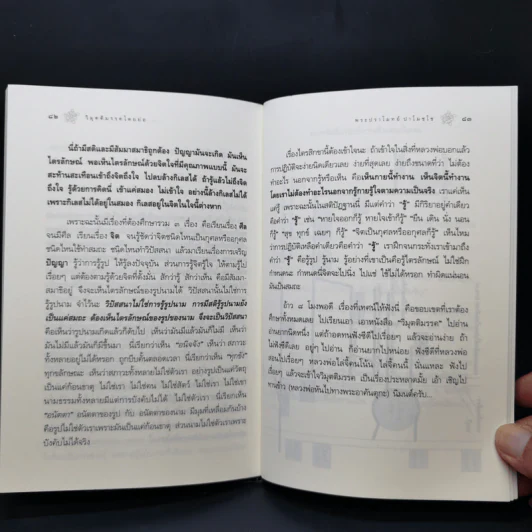 ๘๒
วิมุตติมรรคโดยย่อ
นี่ถ้ามีสติและมีสัมมาสมาธิถูกต้อง ปัญญามันจะเกิด มันเห็น
ไตรลักษณ์ พอเห็นไตรลักษณ์ด้วยจิตใจที่มีคุณภาพแบบนี้ มันจะ
สะท้านสะเทือนเข้าถึงจิตถึงใจ ไปตบล้างกิเลสได้ ถ้ารู้แล้วไม่ถึงจิตถึง
ใจ รู้ด้วยการคิดนี่ เข้าแค่สมอง ไม่เข้าใจ อย่างนี้ล้างกิเลสไม่ได้
เพราะกิเลสไม่ได้อยู่ในสมอง กิเลสอยู่ในจิตในใจนี้ต่างหาก
เพราะฉะนั้นมีเรื่องที่ต้องศึกษารวม ๓ เรื่อง คือเรียนเรื่อง ศีล
จนมีศีล เรียนเรื่อง จิต จนรู้ชัดว่าจิตชนิดไหนเป็นกุศลหรืออกุศล
จิตชนิดไหนใช้ทำสมถะ ชนิดไหนทำวิปัสสนา แล้วมาเรียนเรื่องการเจริญ
ปัญญา รู้ว่าการรู้รูป ให้รู้ลงปัจจุบัน ส่วนการรู้จิตรู้ใจ ให้ตามรู้ไป
เรื่อยๆ แต่ต้องตามรู้ด้วยจิตที่ตั้งมั่น สักว่ารู้ สักว่าเห็น คือมีสัมมา-
สมาธิอยู่ จึงจะเห็นไตรลักษณ์ของรูปนามได้ วิปัสสนาไม่ใช่การไป
รู้รูปนาม จำไว้นะ วิปัสสนาไม่ใช่การรู้รูปนาม การมีสติรู้รูปนามยัง
เป็นแค่สมถะ ต้องเห็นไตรลักษณ์ของรูปของนาม จึงจะเป็นวิปัสสนา
คือเห็นว่ารูปนามเกิดแล้วก็ดับไป เห็นว่ามันมีแล้วมันก็ไม่มี เห็นว่า
มันไม่มีแล้วมันก็มีขึ้นมา นี่เรียกว่าเห็น "อนิจจัง" เห็นว่า สภาวะ
ทั้งหลายอยู่ไม่ได้หรอก ถูกบีบคั้นตลอดเวลา นี่เรียกว่า เห็น "ทุกขัง"
ทุกขลักษณะ เห็นว่าสภาวะทั้งหลายไม่ใช่ตัวเรา อย่างรูปเป็นแค่วัตถุ
เป็นแค่ก้อนธาตุ ไม่ใช่เรา ไม่ใช่คน ไม่ใช่สัตว์ ไม่ใช่เรา ไม่ใช่เขา
นามธรรมทั้งหลายมีแค่การบังคับไม่ได้ ไม่ใช่ตัวเรา นี่เรียกว่าเห็น
"อนัตตา" อนัตตาของรูป กับ อนัตตาของนาม มีมุมที่เหลื่อมกันบ้าง
คือรูปไม่ใช่ตัวเราเพราะมันเป็นแค่ก้อนธาตุ ส่วนนามไม่ใช่ตัวเราเพราะ
บังคับไม่ได้จริง
พระปราโมทย์ ปาโมชฺโช
๘๓
เรื่องไตรสิกขานี้ต้องเข้าใจนะ ถ้าเข้าใจในสิ่งที่หลวงพ่อบอกแล้ว
การปฏิบัติจะง่ายนิดเดียวเลย ง่ายที่สุดเลย ง่ายถึงขนาดที่ว่า ไม่ต้อง
ทำอะไร นอกจากรู้หรือเห็น คือเห็นกายนี้ทำงาน เห็นจิตนี้ทำงาน
โดยเราไม่ต้องทำอะไรนอกจากรู้กายรู้ใจตามความเป็นจริง เราแค่เห็น
แค่รู้ เพราะฉะนั้นในสติปัฏฐานนี่ มีแค่คำว่า "รู้" มีกิริยาอยู่คำเดียว
คือคำว่า "รู้" เช่น "หายใจออกก็รู้ หายใจเข้าก็รู้" "ยืน เดิน นั่ง นอน
ก็รู้" "สุข ทุกข์ เฉยๆ ก็รู้" "จิตเป็นกุศลหรืออกุศลก็รู้" เห็นไหม
ว่าการปฏิบัติเหลือคำเดียวคือคำว่า "รู้" เราฝึกจนกระทั่งเราเข้ามาถึง
คำว่า "รู้" คือรู้รูป รู้นาม รู้อย่างที่เขาเป็นคือรู้ไตรลักษณ์ ไม่ใช่ฝึก
กำหนดนะ กำหนดนี่จิตจะไปนิ่ง ไปแช่ ใช้ไม่ได้หรอก ทำผิดแน่นอน
มันเป็นสมถะ
อ้าว ๘ โมงพอดี เรื่องที่เทศน์ให้ฟังนี่ คือขอบเขตที่เราต้อง
ศึกษาทั้งหมดเลย ไปเรียนเอา เอาหนังสือ "วิมุตติมรรค" ไปอ่าน
อ่านยากนิดหนึ่ง แต่ถ้าอดทนฟังซีดีไปเรื่อยๆ แล้วจะอ่านง่าย ถ้า
ไม่ฟังซีดีเลย อยู่ๆ ไปอ่าน ก็อ่านยากไปหน่อย ฟังซีดีที่หลวงพ่อ
สอนไปเรื่อยๆ หลวงพ่อไล่จี้คนโน้น ไล่จี้คนนี้ นั่นแหละ ฟังไป
เรื่อยๆ แล้วจะเข้าใจวิมุตติมรรค เป็นเรื่องประหลาดมั้ย เอ้า เชิญไป
ทานข้าว (หลวงพ่อหันไปทางพระอาคันตุกะ) นิมนต์ครับ...